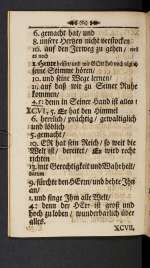 6. gemacht hat/ und
8. unsere Hertzen nicht verstocken
10. auf den Irrweg zu gehen/
1. Heute
seine Stimme hören/
10. und seine Wege lernen/
11. auf daß wir zu Seiner Ruhe
kommen/
4. 5: denn in Seiner Hand ist alles!
XCVI, 5. Er hat den Himmel
6. herrlich/ prächtig/ gewaltiglich
und löblich
5. gemacht/
10. ER hat sein Reich/ so weit die
Welt ist/ bereitet/ Er wird recht
richten
13. mit Gerechtigkeit und Wahrheit/
darum
9. fürchte den HErrn/ und bethe Ihn
an/
1. und singe Ihm alle Welt/
4: denn der HErr ist groß und
hoch zu loben/ wunderbarlich über
alles.
XCVII,